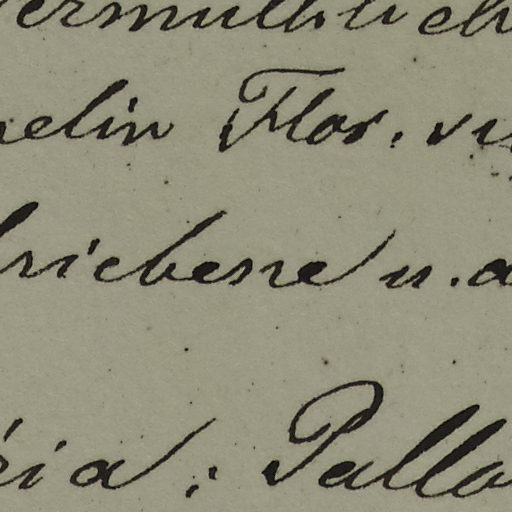 vermuthlich
melin Flor. su
hriebene u. a
ria; Palla